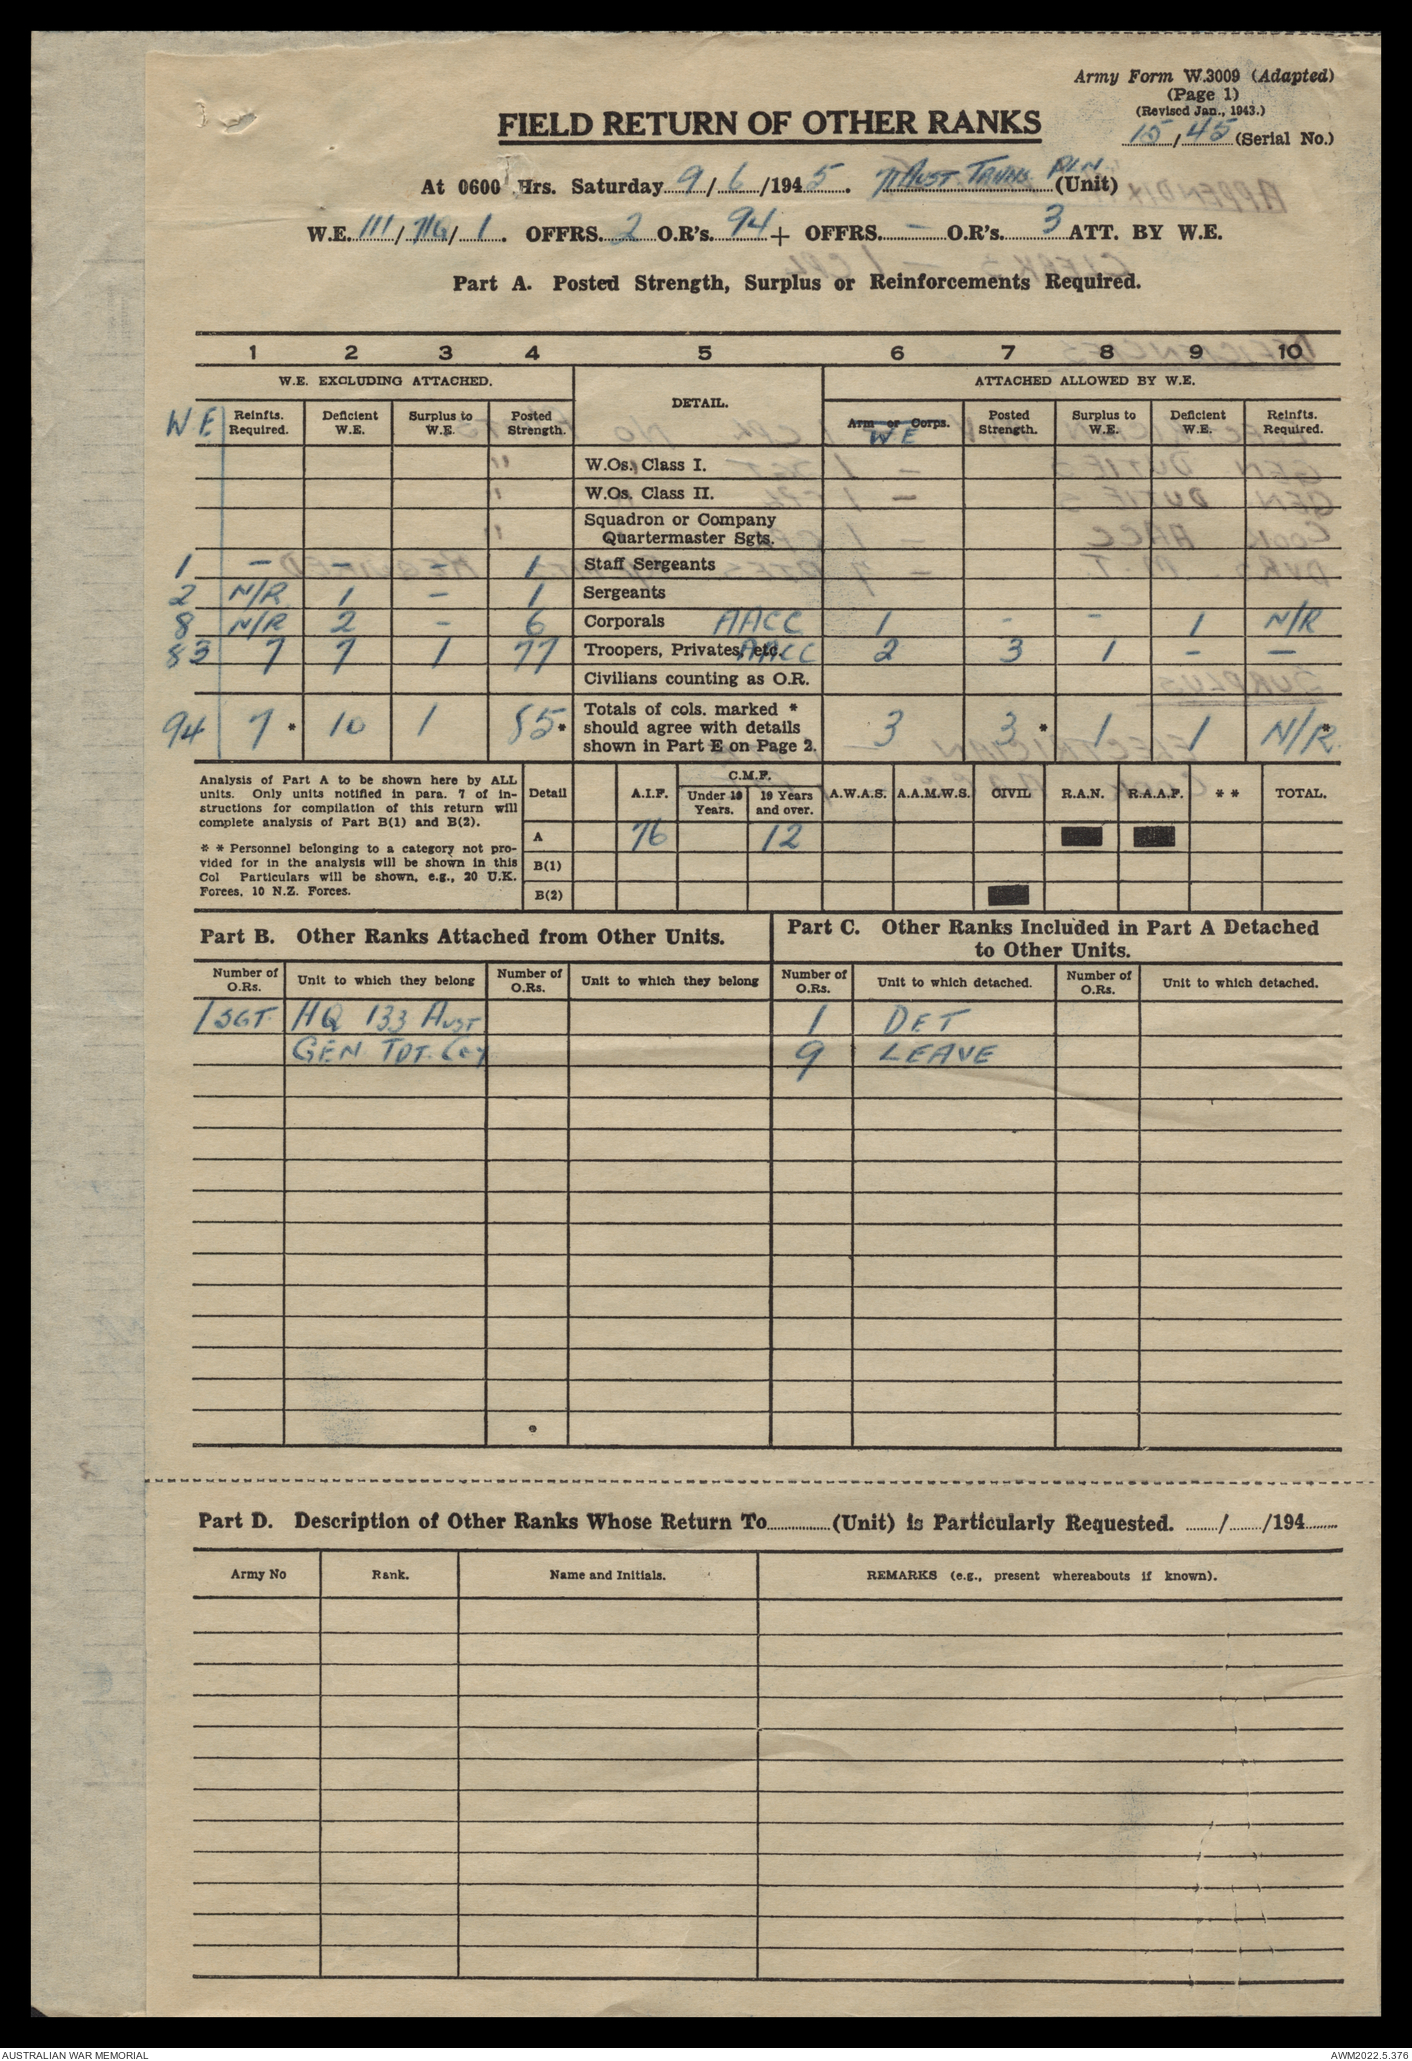 Army Form W.3009 (Adapted)
(Page 1)
(Revised Jan., 1943.)
FIELD RETURN OF OTHER RANKS
15/45 (Serial No.)
At 0600 Hrs. Saturday 9/6/1945. 71 Aust Trans PLN (Unit)
W.E. III/71G/1. OFFRS. 2 O.R's. 94 + OFFRS. - O.R's. 3 ATT. BY W.E.
Part A. Posted Strength, Surplus or Reinforcements Required.
1 2 3 4 5 6 7 8 9 10
W.E. EXCLUDING ATTACHED. DETAIL. ATTACHED ALLOWED BY W.E.
WE Reinfts. Required. Deficient W.E. Surplus to W.E. Posted Strength. Arm or Corps. WE Posted Strength. Surplus to W.E. Deficient W.E. Reinfts. Required.
W.Os. Class I.
W.Os. Class II.
Squadron or Company
Quartermaster Sgts.
1 - - - 1 Staff Sergeants
2 N/R 1 - 1 Sergeants
8 N/R 2 - 6 Corporals AACC 1 - - 1 N/R
83 7 7 1 77 Troopers, Privates, etc. AACC 2 3 1 - -
Civilians counting as O.R.
94 7 * 10 1 85 * Totals of cols. marked * should agree with details shown in Part E on Page 2. 3 3 * 1 1 N/R *
Analysis of Part A to be shown here by ALL
units. Only units notified in para. 7 of in-
structions for compilation of this return will
complete analysis of Part B(1) and B(2).
* * Personnel belonging to a category not pro-
vided for in the analysis will be shown in this
Col Particulars will be shown, e.g., 20 U.K.
Forces, 10 N.Z. Forces.
Detail A.I.F. C.M.F. Under 19 Years. 19 Years and over. A.W.A.S. A.A.M.W.S. CIVIL R.A.N. R.A.A.F. * * TOTAL.
A 76 12
B(1)
B(2)
Part B. Other Ranks Attached from Other Units.
Part C. Other Ranks Included in Part A Detached
to Other Units.
Number of O.Rs. Unit to which they belong Number of O.Rs. Unit to which they belong Number of O.Rs. Unit to which detached. Number of O.Rs. Unit to which detached.
1 SGT. HQ 133 Aust 1 DET
GEN TPT. Coy 9 LEAVE
Part D. Description of Other Ranks Whose Return To............(Unit) is Particularly Requested. ......./......./194.......
Army No Rank. Name and Initials. REMARKS (e.g., present whereabouts if known).
AUSTRALIAN WAR MEMORIAL
AWM2022.5.376